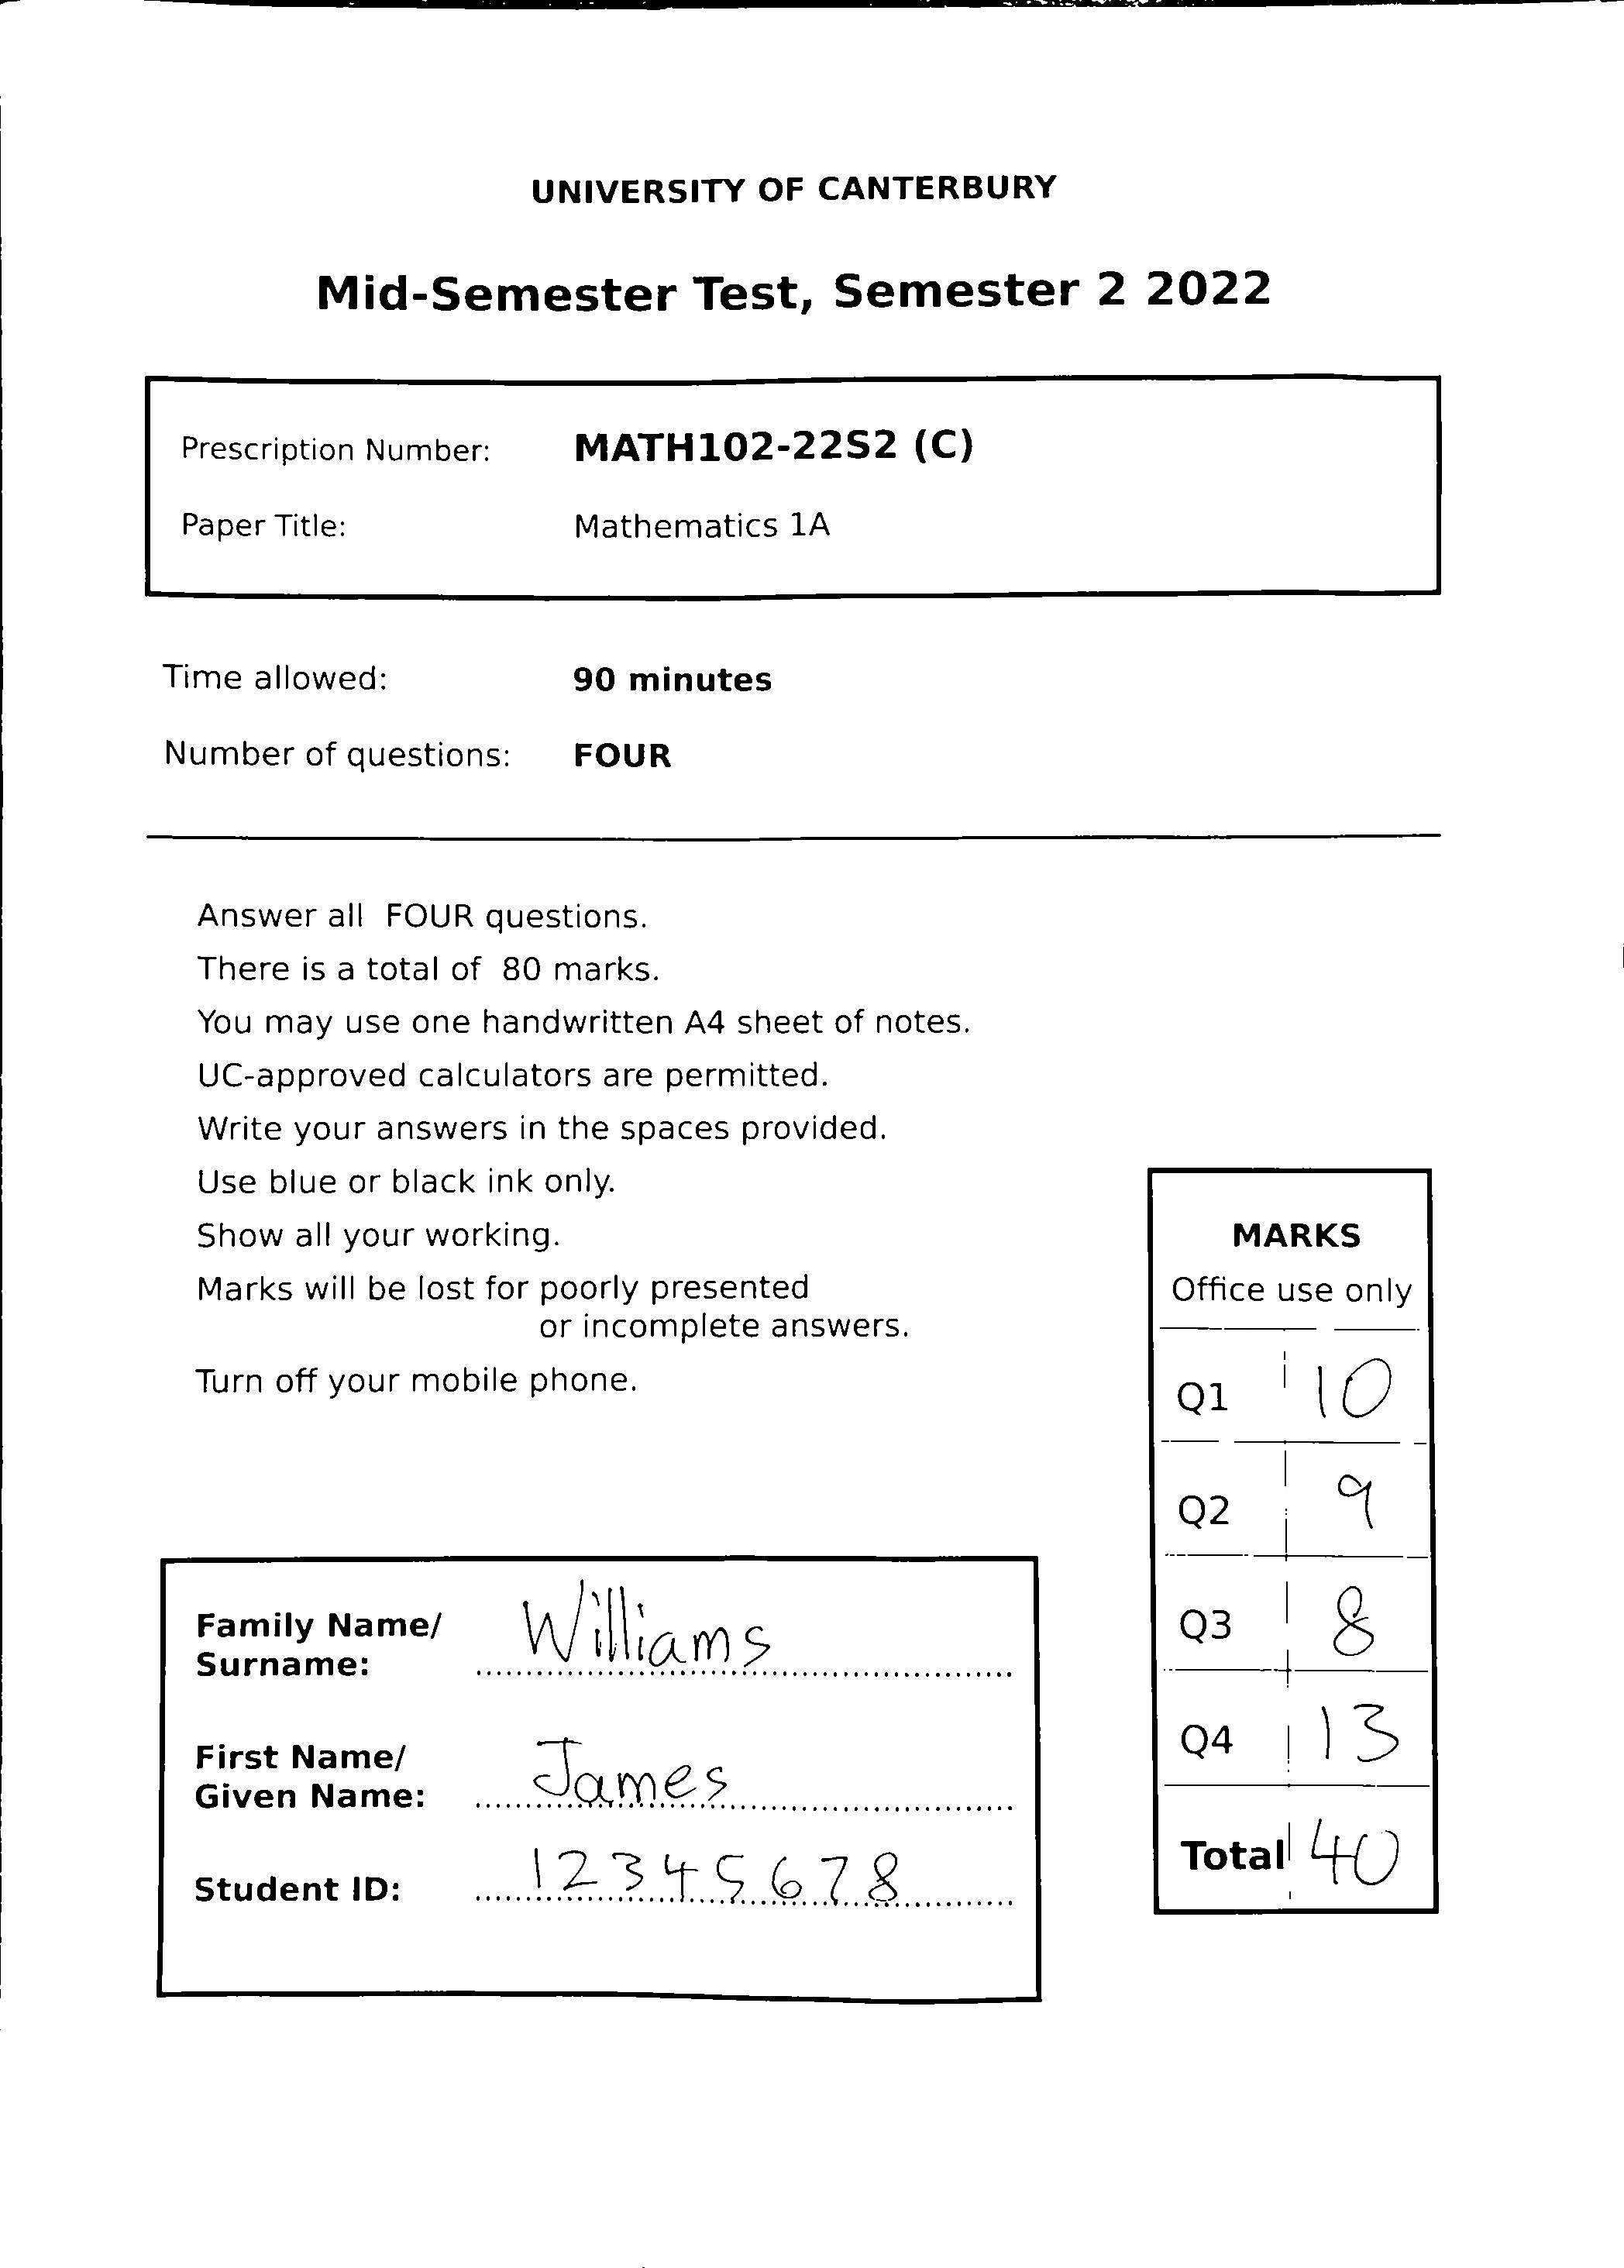 UNIVERSITY OF CANTERBURY
Mid-Semester Test, Semester 2 2022
Prescription Number: MATH102-22S2 (C)
Paper Title: Mathematics 1A
Time allowed: 90 minutes
Number of questions: FOUR
Answer all FOUR questions.
There is a total of 80 marks.
You may use one handwritten A4 sheet of notes.
UC-approved calculators are permitted.
Write your answers in the spaces provided.
Use blue or black ink only.
Show all your working.
Marks will be lost for poorly presented
or incomplete answers.
Turn off your mobile phone.
MARKS
Office use only
Q1 10
Q2 9
Q3 8
Q4 13
Total 40
Family Name/
Surname: Williams
First Name/
Given Name: James
Student ID: 12345678